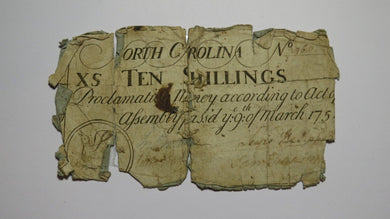 ORTH CAROLINA N°
XS TEN SHILLINGS
Proclamati Money according to Act
Assembly pass'd yͤ 9th of March 175